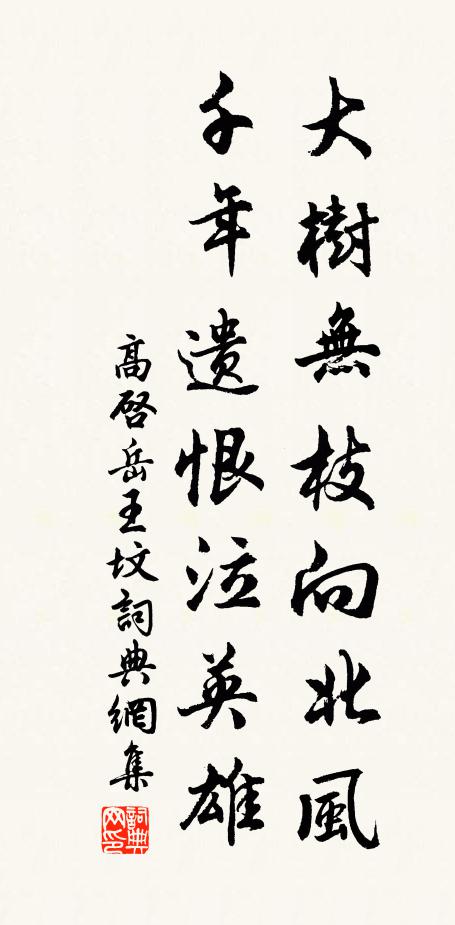 大樹無枝向北風
千年遺恨泣英雄
高啓岳王墳詞典網集
詞典網印